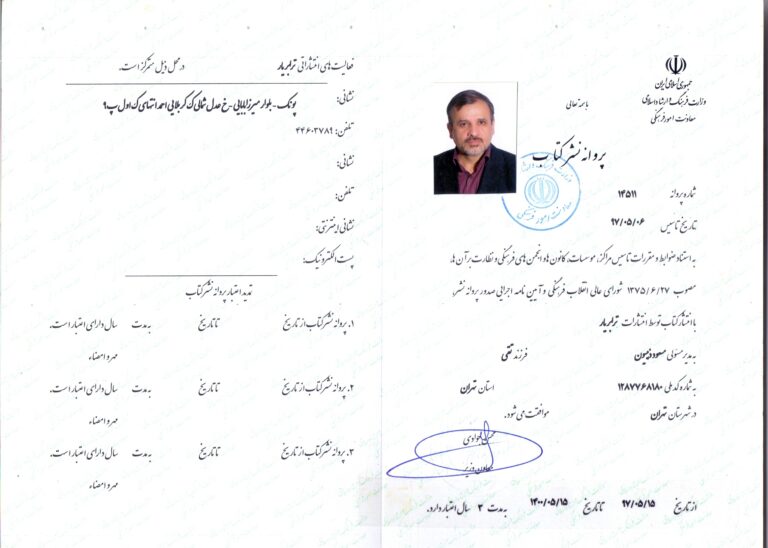 جمهوری اسلامی ایران
وزارت فرهنگ و ارشاد اسلامی
معاونت امور فرهنگی
باسمه تعالی
پروانه نشر کتاب
شماره پروانه ۱۴۵۱۱
تاریخ تاسیس ۹۷/۰۵/۰۶
به استناد ضوابط و مقررات تاسیس مراکز، موسسات، کانون ها و انجمن های فرهنگی و نظارت بر آن ها،
مصوب ۱۳۷۵/۶/۲۷ شورای عالی انقلاب فرهنگی و آیین نامه اجرایی صدور پروانه نشر،
با انتشار کتاب توسط انتشارات ترابریار
به مدیر مسئولی مسعود فرزند تقی
به شماره کد ملی ۱۲۸۷۷۶۸۱۸۰ استان تهران
در شهرستان تهران موافقت می شود.
معاون وزیر
از تاریخ ۹۷/۰۵/۱۵ تا تاریخ ۱۴۰۰/۰۵/۱۵ به مدت ۳ سال اعتبار دارد.
وزارت فرهنگ و ارشاد
معاونت امور فرهنگی
فعالیت های انتشاراتی ترابریار در محل ذیل متمرکز است.
نشانی:
پونک - بلوار میرزابابایی - خ عدل شمالی ک کربلایی احمد انتهای ک اول پ۹
تلفن: ۴۴۶۰۳۷۸۹
نشانی:
تلفن:
نشانی اینترنتی:
پست الکترونیک:
تمدید اعتبار پروانه نشر کتاب
۱. پروانه نشر کتاب از تاریخ تا تاریخ به مدت سال دارای اعتبار است.
مهر و امضاء
۲. پروانه نشر کتاب از تاریخ تا تاریخ به مدت سال دارای اعتبار است.
مهر و امضاء
۳. پروانه نشر کتاب از تاریخ تا تاریخ به مدت سال دارای اعتبار است.
مهر و امضاء